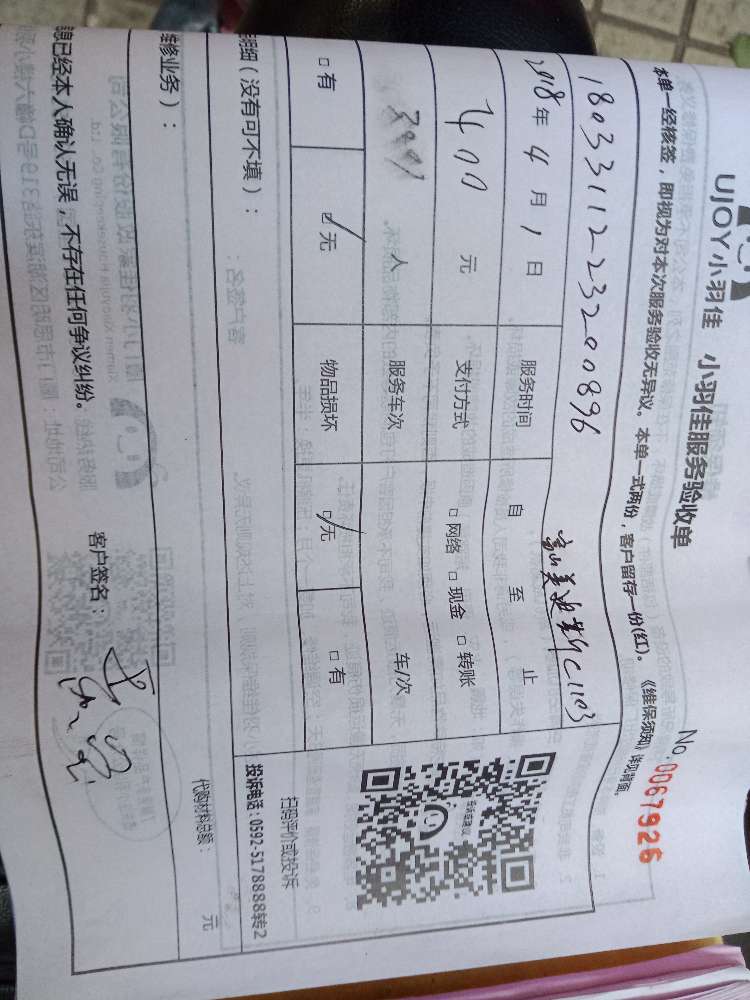 UJOY小羽佳 小羽佳服务验收单
No:0067926
本单一经核签，即视为对本次服务验收无异议。本单一式两份，客户留存一份(红)。《维保须知》详见背面。
1803311223200896
C1103
2018年4月1日 服务时间 自 至 止
400 元 支付方式 □网络 □现金 □转账
人 服务车次 车/次
□有 ☑无 物品损坏 ☑无 □有
扫码评价或投诉
投诉电话：0592-5178888转2
明细（没有可不填）：
代购材料总额： 元
维修业务）：
息已经本人确认无误，不存在任何争议纠纷。 客户签名：